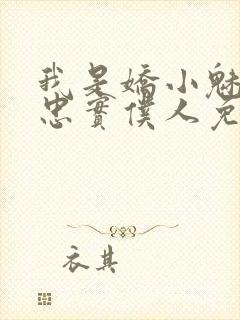 我是嬌小魅
忠實僕人免
衣其